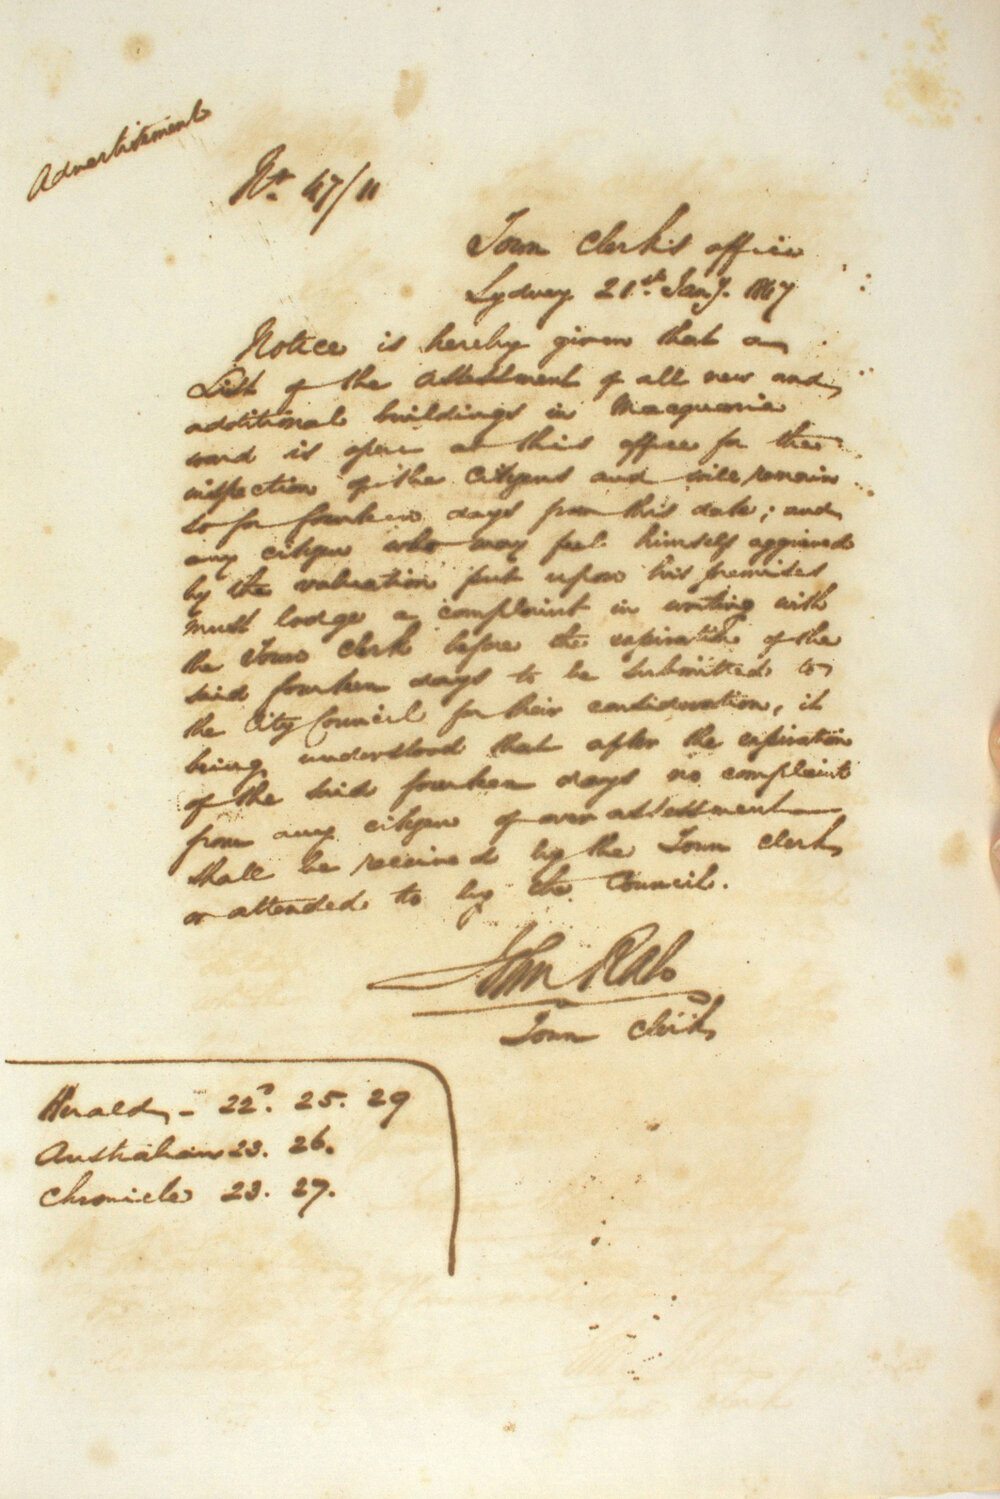 Advertisement
No. 47/11
Town Clerk's office
Sydney 21st Jany. 1847
Notice is hereby given that a
List of the Assessment of all new and
additional buildings in Macquarie
ward is open at this office for the
inspection of the Citizens and will remain
so for fourteen days from this date; and
any citizen who may feel himself aggrieved
by the valuation put upon his premises
must lodge a complaint in writing with
the Town Clerk before the expiration of the
said fourteen days to be submitted to
the City Council for their consideration, it
being understood that after the expiration
of the said fourteen days no complaint
from any citizen of over assessment
shall be received by the Town Clerk
or attended to by the Council.
John Rae
Town Clerk
Herald - 22d. 25. 29
Australian 23. 26.
Chronicle 23. 27.